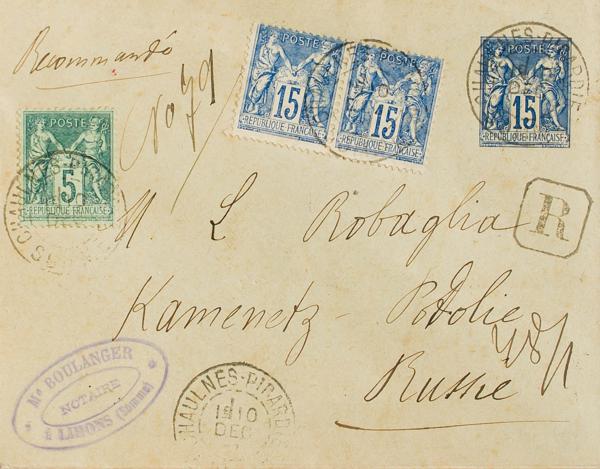 Recommandé
No 79
POSTE
15
RÉPUBLIQUE FRANÇAISE
POSTE
15
RÉPUBLIQUE FRANÇAISE
POSTE
15
RÉPUBLIQUE FRANÇAISE
CHAULNES-PICARDIE
POSTE
5
RÉPUBLIQUE FRANÇAISE
CHAULNES-PI
R
M L Robaglia
Kamenetz-Podolie
Russie
Me BOULANGER
NOTAIRE
à LIHONS (Somme)
CHAULNES-PICARD
10
DEC